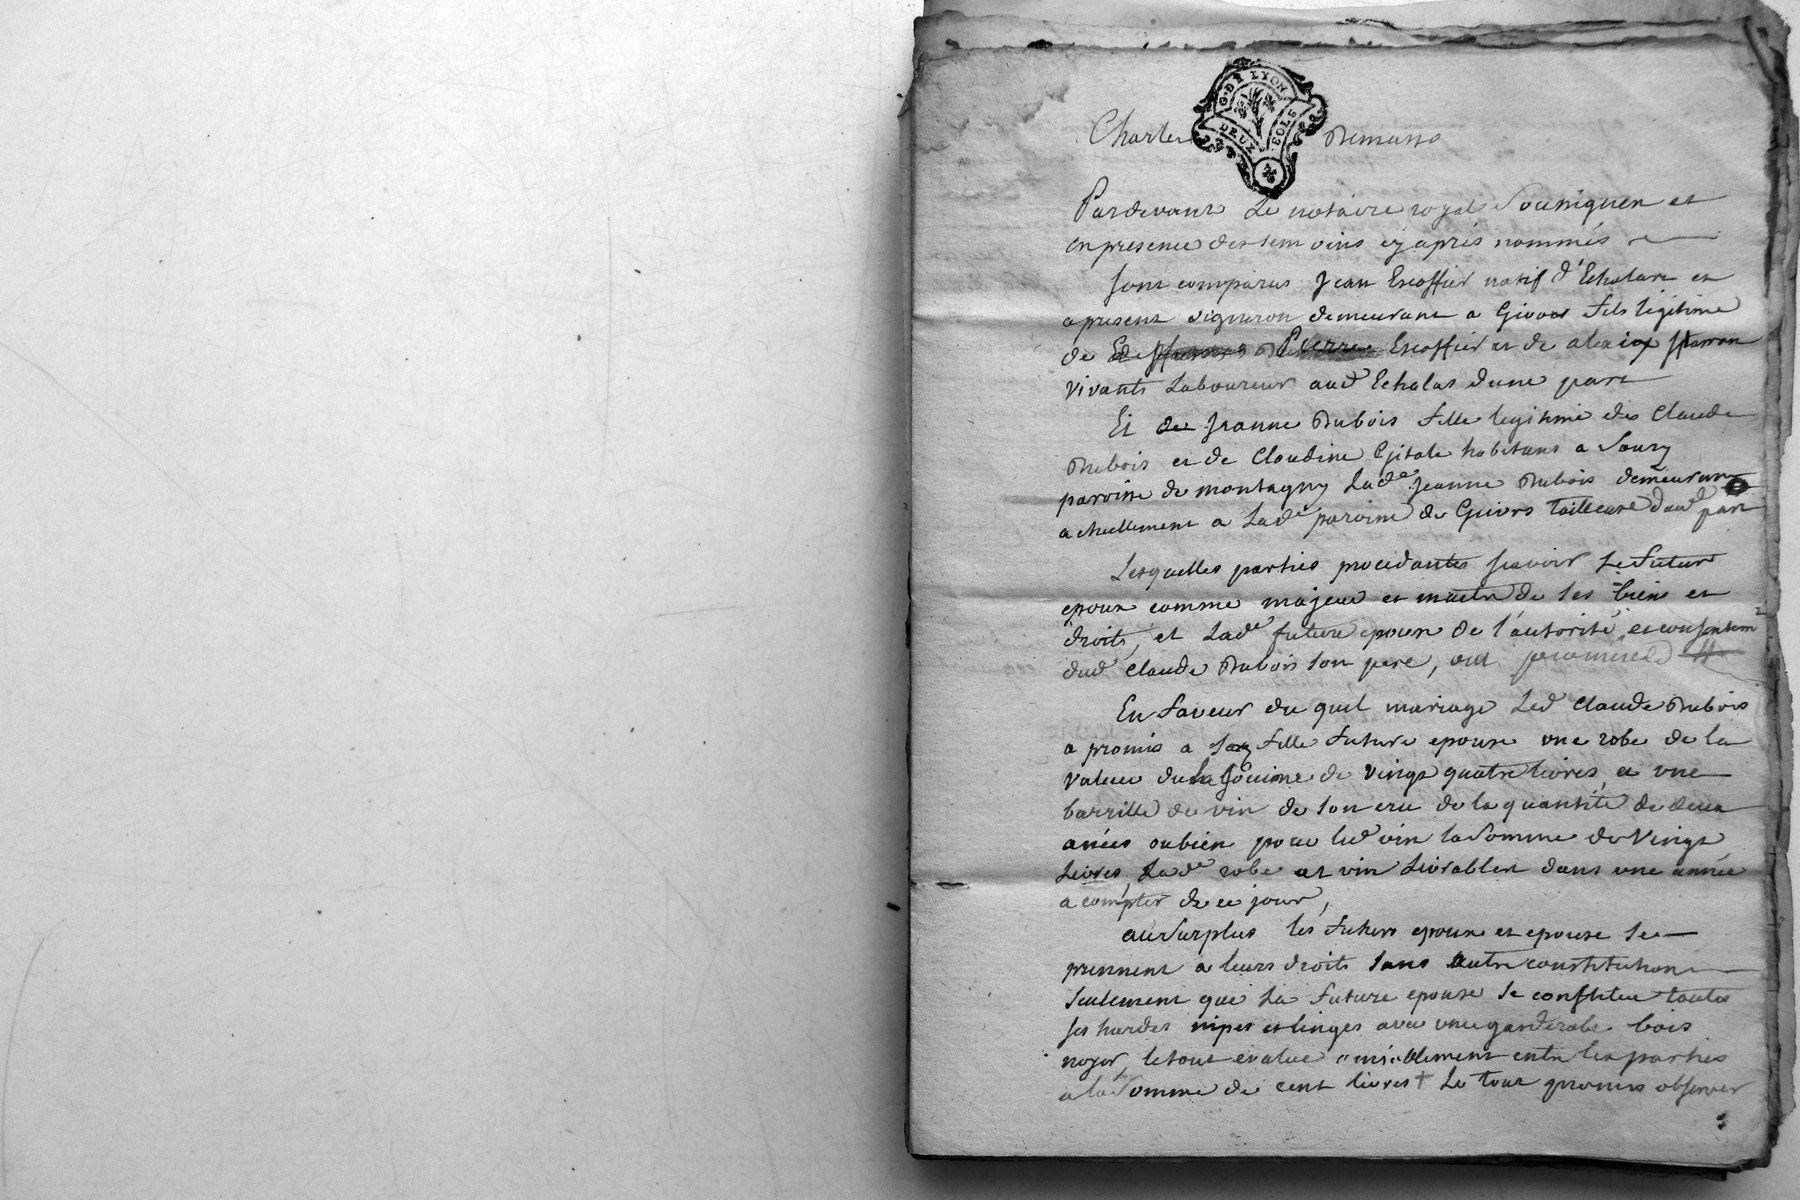 G. DE LYON
DEUX SOLS
Charles
Pardevant Le notaire royal Sousigner et
en presence des temoins cy après nommés
sont comparus Jean Escoffier natif d'Echalas et
a present vigneron demeurant a Givors fils legitime
de Pierre Escoffier et de
vivants Laboureur aud Echalas dune part
Et de Jeanne Dubois fille legitime de Claude
Dubois et de Claudine Gitale habitans a Soury
paroisse de montagny Lade Jeanne Dubois demeurant
actuellement a Lade paroisse de Givors tailleuse d'aud part
Lesquelles parties procedantes scavoir Le futur
epoux comme majeur et maitre de ses biens et
droits, et Lade future epouse de l'autorité et consentem
dud Claude Dubois son pere, ont promis
En faveur du quel mariage Led Claude Dubois
a promis a sa fille future epouse une robe de la
valeur de la somme de vingt quatre livres, et une
barrille de vin de son cru de la quantité de deux
anées oubien pour led vin la somme de Vingt
Livres Lade robe et vin Livrables dans une année
a compter de ce jour,
au Surplus les futurs epoux et epouse se
prennent a leurs droits sans autre constitution
seulement que La future epouse se constitue toutes
ses hardes nipes et linges avec une garderobe bois
noyer, le tout evalué amiablement entre les parties
a la somme de cent livres + Le tout promis observer